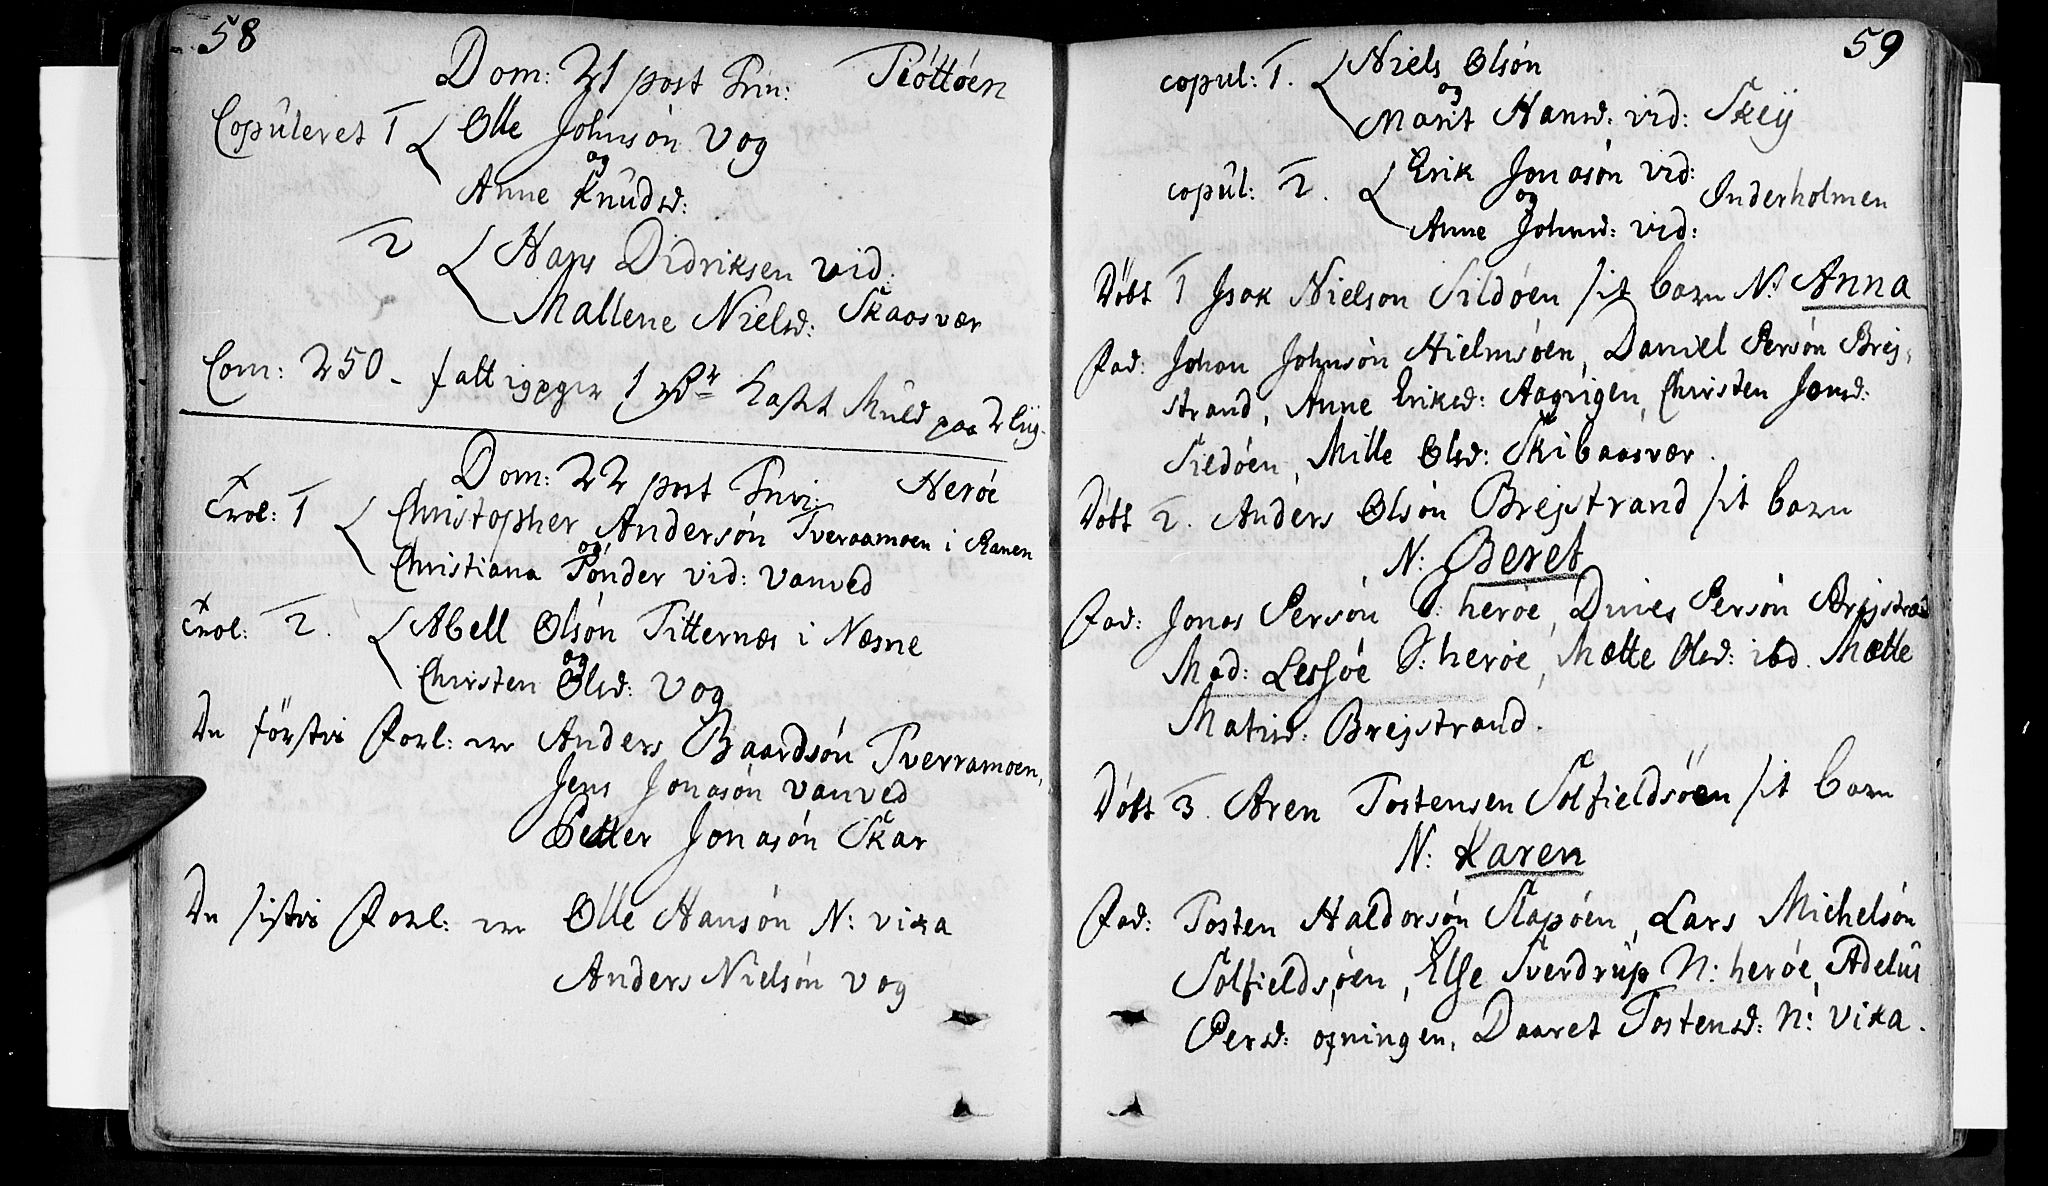 58
Dom: 21 post Trin: Tiöttöen
Copuleret 1 Olle Johnsön Vog
og
Anne Knudsd:
2 Hans Didriksen vid:
Mallene Nielsd: Skaasvær
Com: 250. fattigpger 1 Kast Muld paa 2 liig.
Dom: 22 post Trini: Heröe
Trol: 1 Christopher Andersön Tveraamoen i Ranen
og
Christiana Pönder vid: Vanved
Trol: 2. Abell Olsön Titternæs i Næsne
og
Christen Olsd: Vog
De förster Forl: er Anders Baardsön Tverramoen,
Jens Jonasön Vanved
Petter Jonasön Skar
De sister Forl: er Olle Hansön N: vika
Anders Nielsön Vog
59
copul: 1. Niels Olsön
og
Marit Hansd: vid: Skeij
copul: 2. Erik Jonasön vid:
og Inderholmen
Anne Johnsd: vid:
Döbt 1 Isak Nielson Sildöen sit barn N: Anna
Fad: Johan Johnsön Hielmsöen, Daniel Persön Brej,
strand, Anne Eriksd: Aagvigen, Christen Jonsd:
Sildöen, Mille Olsd: Skibaasvær.
Döbt 2. Anders Olsön Brejstrand sit barn
N: Beret
Fad: Jonas Persön S: heröe, Dines Persön Brejstrand
Mad: Lessöe S: heröe, Mætte Olsd: ibd. Mætte
Matisd: Brejstrand.
Döbt 3. Aren Tostensen Solfieldsöen sit barn
N: Karen
Fad: Tosten Haldorsön Slapöen, Lars Michelsön
Solfieldsöen, Else Sverdrup N: heröe, Adelus
Persd: öpningen, Daaret Tostensd: N: vika.